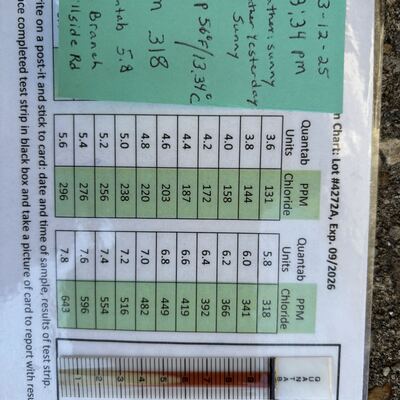 3-12-25
3:34 pm
ther: sunny
ther yesterday
Sunny
p 56°F/13.34°C
m 318
ntab 5.8
Branch
ilside Rd
n Chart: Lot #4272A, Exp. 09/2026
Quantab Units PPM Chloride
3.6 131
3.8 144
4.0 158
4.2 172
4.4 187
4.6 203
4.8 220
5.0 238
5.2 256
5.4 276
5.6 296
Quantab Units PPM Chloride
5.8 318
6.0 341
6.2 366
6.4 392
6.6 419
6.8 449
7.0 482
7.2 516
7.4 554
7.6 596
7.8 643
QUANTAB
9
8
7
6
5
4
3
2
1
rite on a post-it and stick to card: date and time of sample, results of test strip.
ace completed test strip in black box and take a picture of card to report with resu